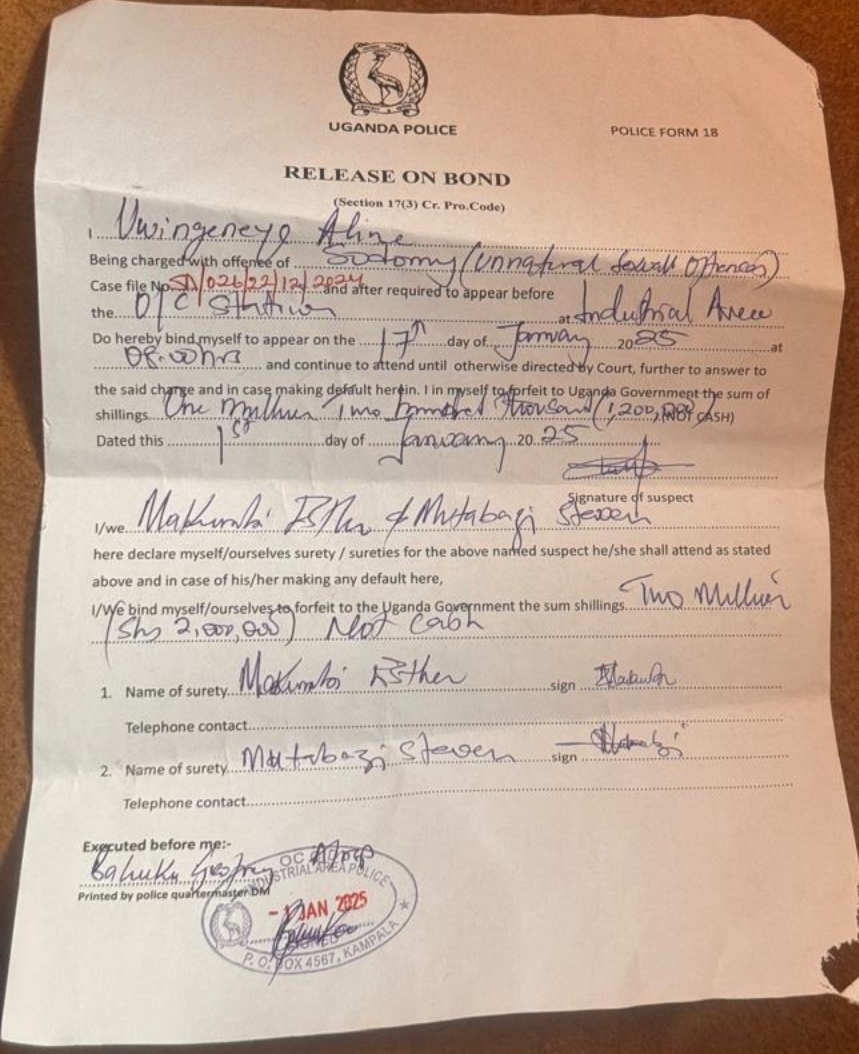 UGANDA POLICE
POLICE FORM 18
RELEASE ON BOND
(Section 17(3) Cr. Pro.Code)
I Uwingeneye Aline
Being charged with offence of Sodomy (Unnatural Offences)
Case file No. SD/026/22/12/2024 and after required to appear before
the O/C Station at Industrial Area
Do hereby bind myself to appear on the 17th day of January 2025 at
08:00hrs and continue to attend until otherwise directed by Court, further to answer to
the said charge and in case making default herein. I in myself to forfeit to Uganda Government the sum of
shillings One Million Two hundred thousand (1,200,000) (NOT CASH)
Dated this 1st day of January 2025
Signature of suspect
I/we Makumbi Esther & Mutabazi Steven
here declare myself/ourselves surety / sureties for the above named suspect he/she shall attend as stated
above and in case of his/her making any default here,
I/We bind myself/ourselves to forfeit to the Uganda Government the sum shillings Two Million
(Shs 2,000,000) Not Cash
1. Name of surety Makumbi Esther sign
Telephone contact
2. Name of surety Mutabazi Steven sign
Telephone contact
Executed before me:-
Printed by police quartermaster DM
OC
INDUSTRIAL AREA POLICE
-1 JAN 2025
SIGNED
P. O. BOX 4567, KAMPALA